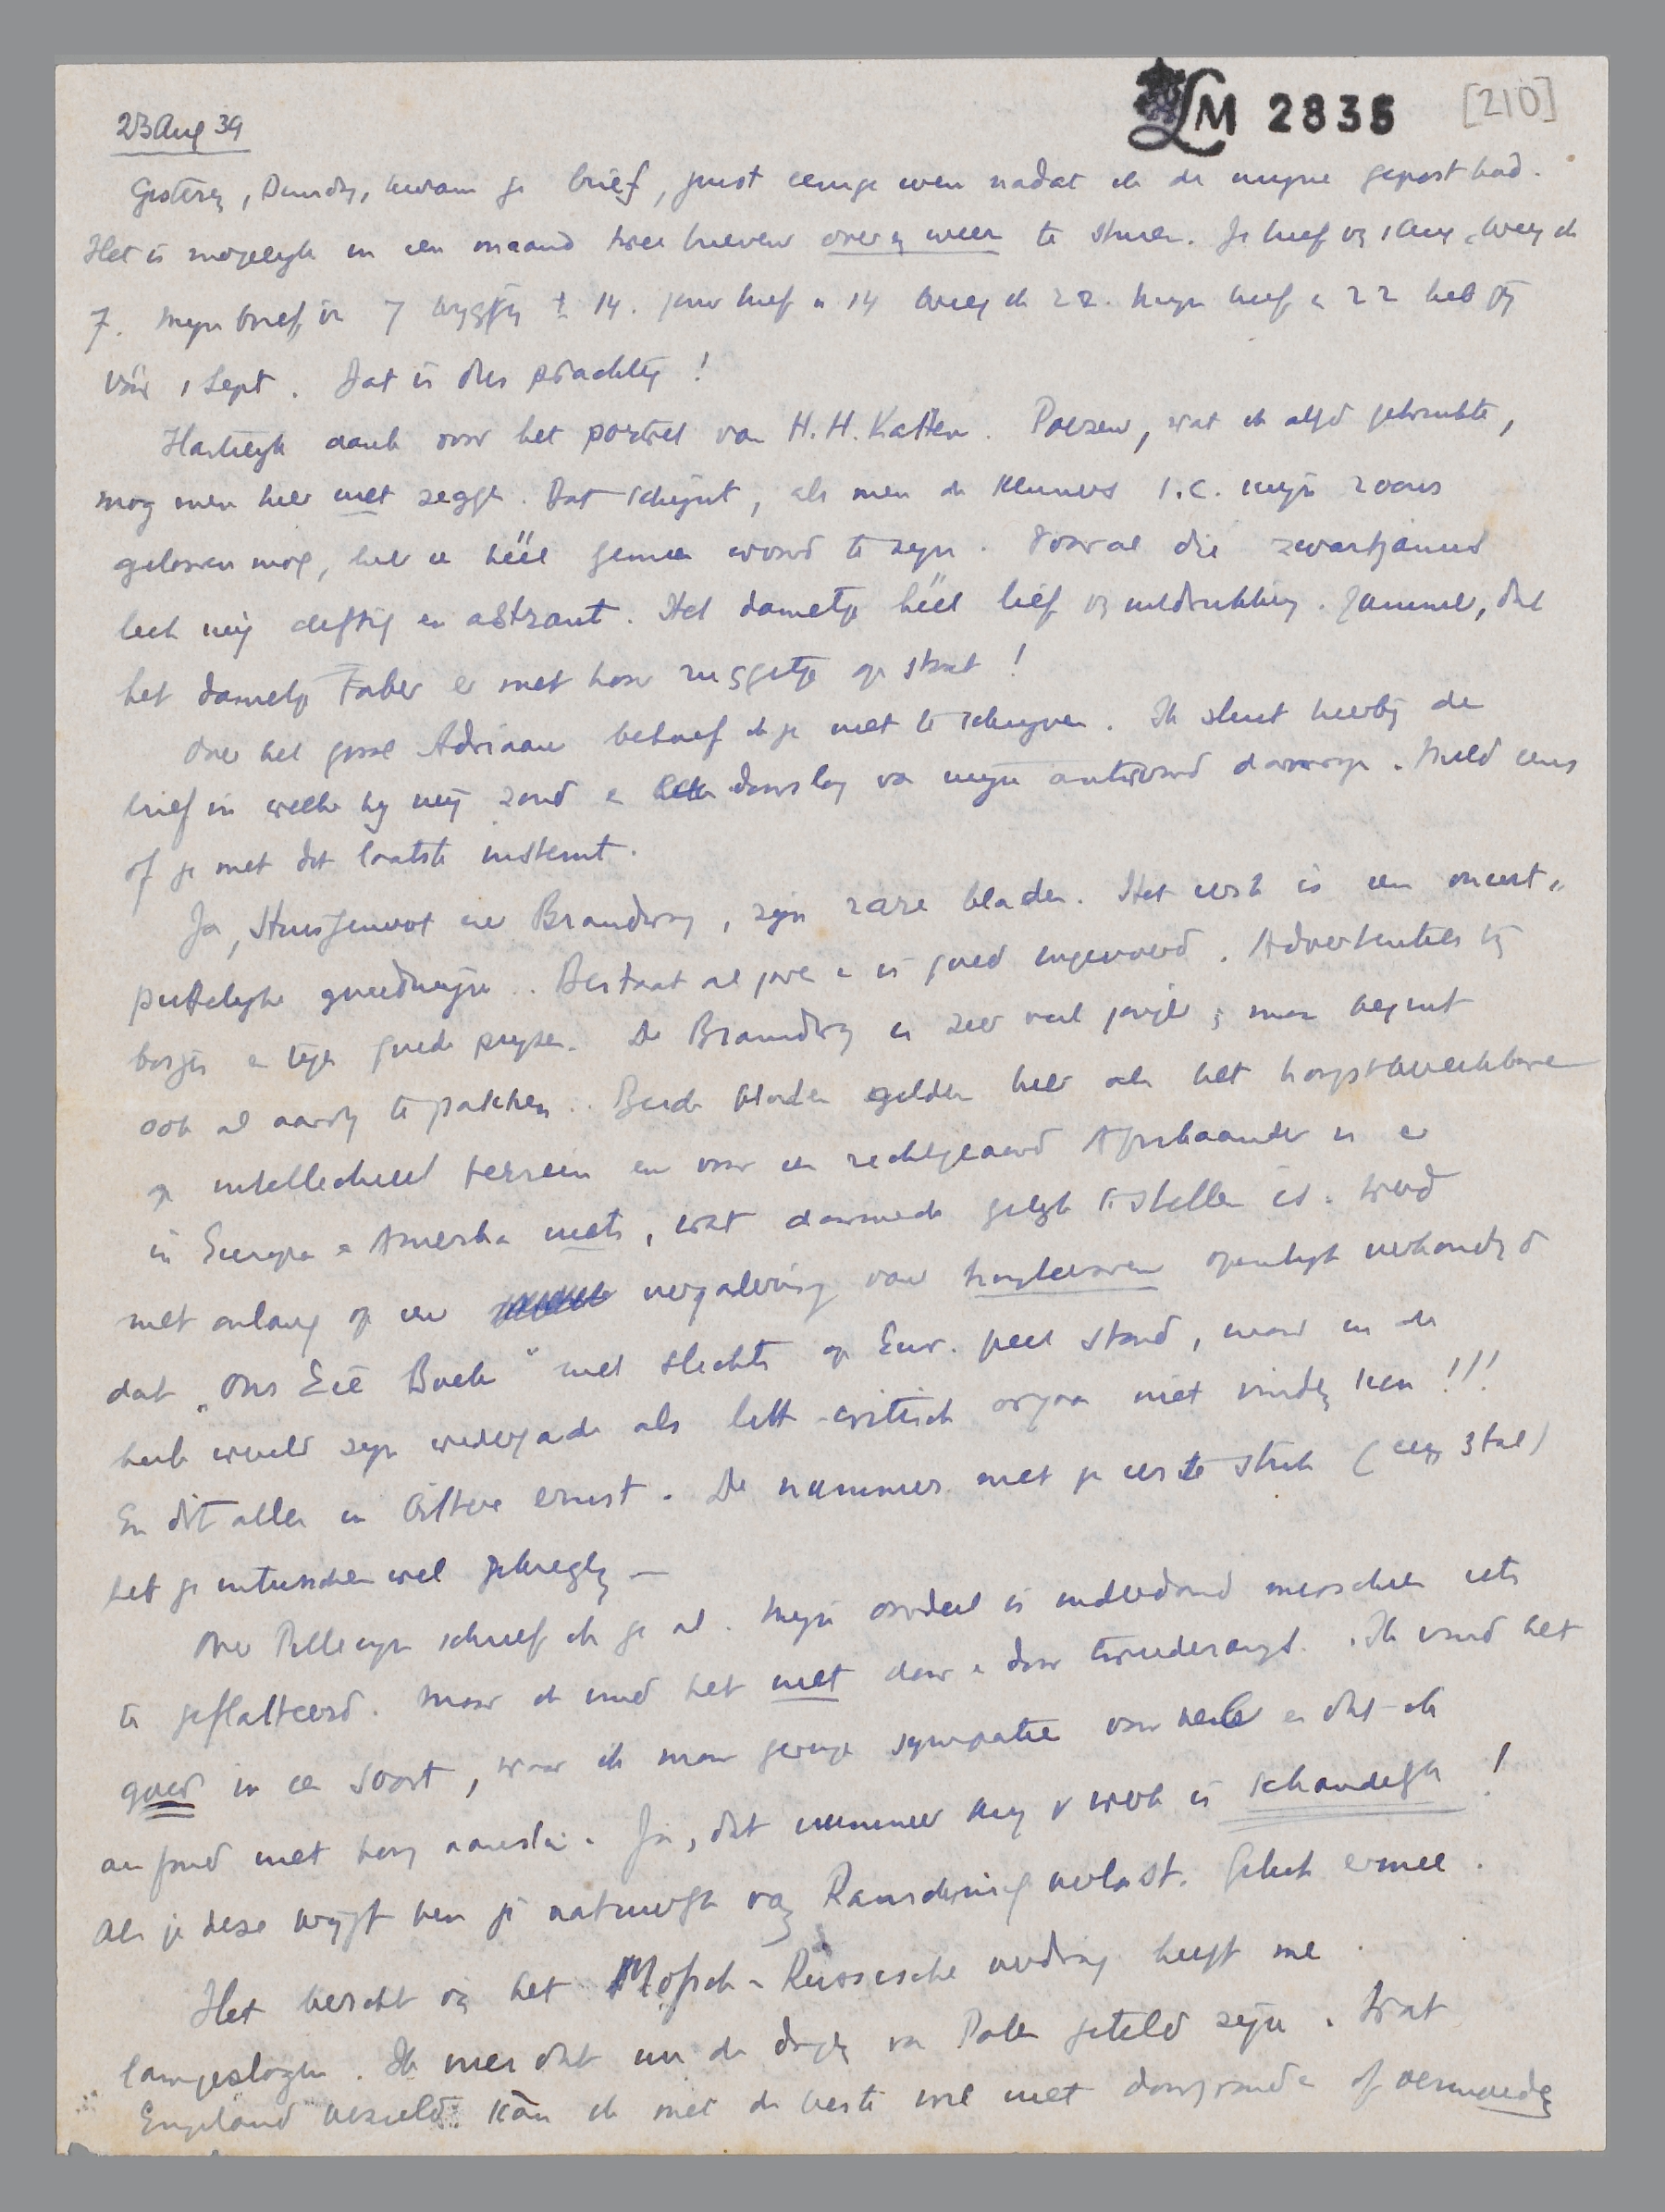 23 Aug 39
LM 2835 [210]
Gisteren, Dinsdag, kwam je brief, juist eenige uren nadat ik de mijne gepost had.
Het is mogelijk in een maand twee brieven over en weer te sturen. Je brief van 1 Aug. kreeg ik
7. Mijn brief van 7 kreeg jij ± 14. Jouw brief van 14 kreeg ik 22. Mijn brief van 22 heb jij
vóór 1 Sept. Dat is dus prachtig!
Hartelijk dank voor het portret van H.H. Katten. Poezen, wat ik altijd gebruikte,
mag men hier niet zeggen. Dat schijnt, als men de kenners i.c. mijn zoons
gelooven mag, hier een héél gemeen woord te zijn. Vooral die zwartjanus
leek mij deftig en astrant. Het dametje héél lief van uitdrukking. Jammer, dat
het dametje Faber er met haar ruggetje op staat!
Over het geval Adriaan behoef ik je niet te schrijven. Ik sluit hierbij de
brief in welke hij mij zond en doorslag van mijn antwoord daarop. Meld eens
of je met dit laatste instemt.
Ja, Huisgenoot en Brandwag, zijn rare bladen. Het eerste is een onuit-
puttelijke goudmijn. Bestaat al jaren en is goed ingevoerd. Advertenties bij
bosjes en tegen goede prijzen. De Brandwag is zeer veel jonger; maar begint
ook al aardig te pakken. Beide bladen gelden hier als het hoogst bereikbare
op intellectueel terrein en voor een rechtgeaard Afrikaander is er
in Europa en Amerika niets, wat daarmede gelijk te stellen is. Werd
niet onlangs op een vergadering van hoogleeraren openlijk verkondigd
dat "Ons Eie Boek" niet slechts op Eur. peil stond, maar in de
heele wereld zijn wedergade als litt-critisch orgaan niet vinden kon!!!
En dit alles in bittere ernst. De nummers met je eerste stuk
heb je intusschen wel gekregen —
Over Pillecijn schreef ik je al. Mijn oordeel is inderdaad misschien iets
te geflatteerd. Maar ik vind het niet door en door tweederangs. Ik vind het
goed in een soort, waar ik maar geringe sympathie voor heb en dat ik
au fond niet hoog aansla. Ja, dat nummer is schandelijk!
Als je deze krijgt ben je natuurlijk van Rauschning verlost. Geluk ermee.
Het bericht van het Mofsch-Russische verdrag heeft me
lamgeslagen. Ik vrees dat nu de dagen van Polen geteld zijn. Wat
Engeland bezielt kan ik met de beste wil niet doorgronden of vermoeden